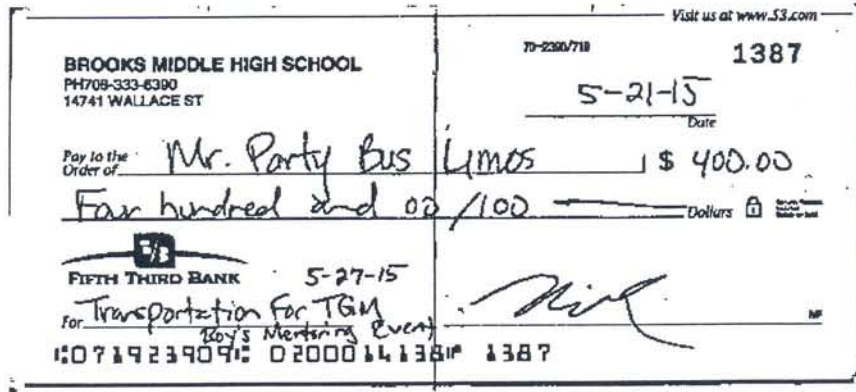 Visit us at www.53.com
70-2390/719
1387
BROOKS MIDDLE HIGH SCHOOL
PH708-333-6390
14741 WALLACE ST
5-21-15
Date
Pay to the
Order of
Mr. Party Bus Limos
$ 400.00
Four hundred and 00/100
Dollars
5/3
FIFTH THIRD BANK
5-27-15
For Transportation For TGM
Boy's Mentoring Event
MP
⑆071923909⑆ 0200014138⑈ 1387